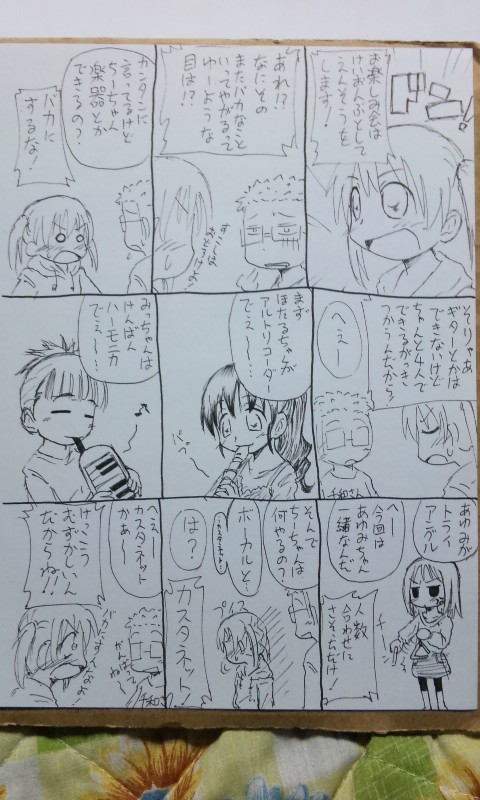 お楽しみ会は
けいおんぶとして
えんそうを
します!
あれ!?
なにその
またバカなこと
いってやがるって
ゆーような
目は!?
カンタンに
言ってるけど
ちーちゃん
楽器とか
できるの?
バカに
するな!
そりゃあ
ギターとかは
できないけど
ちゃんと4人で
できるがっき
つかうんだから
へぇー
千和さん
まず
ほたるちゃが
アルトリコーダー
でぇ〜…
みっちゃんは
けんばん
ハーモニカ
でぇ〜…
あゆみが
トライ
アングル
へー
今回は
あゆみちゃん
一緒なんだ
人数
合わせに
さそっただけ!
チーン
そんで
ちーちゃんは
何やるの?
ボーカルと…
…カスタネット…
は?
カスタネット!
プイス
へぇ
カスタネット
かぁ〜
けっこう
むずかしいん
だからね!!
がんばって
ね〜
千和さん